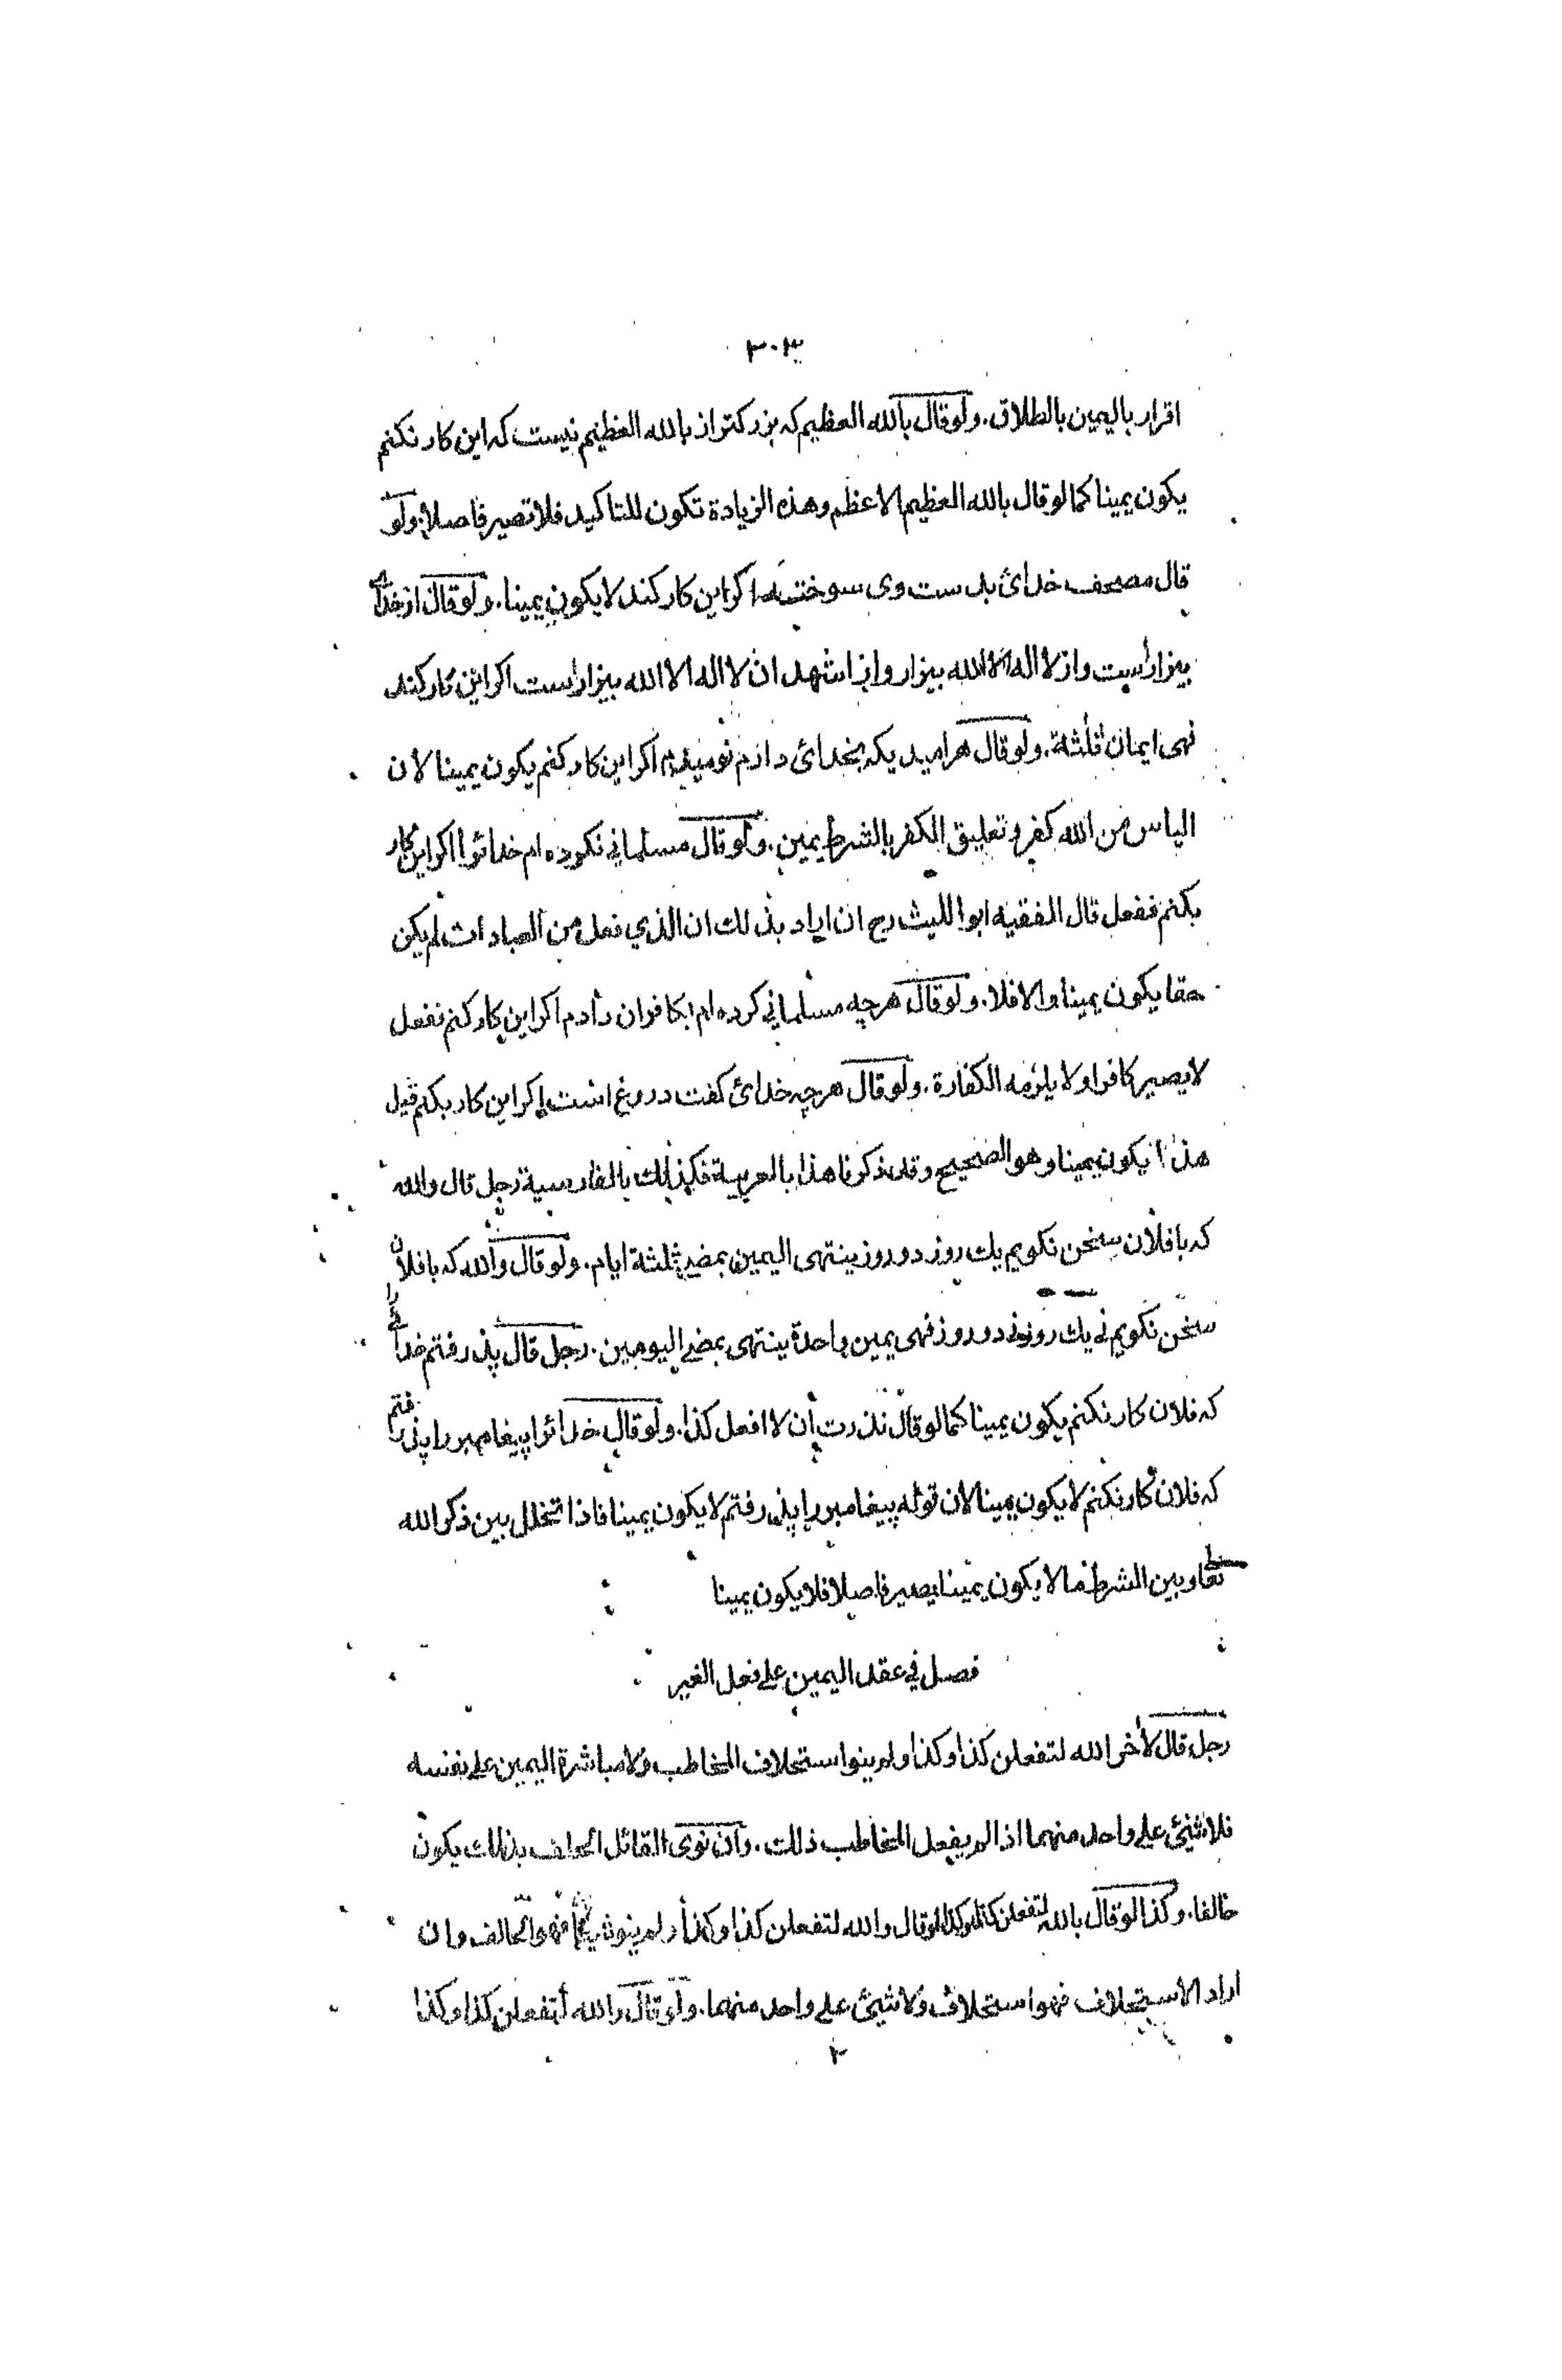 ٣٠٣
اقرار باليمين بالطلاق. ولو قال بالله العظيم كه بزركتر از بالله العظيم نيست كه اين كار نكنم
يكون يمينا كما لو قال بالله العظيم الاعظم وهذه الزيادة تكون للتاكيد فلا تصير فاصلا. ولو
قال مصحف خدائ بدست وى سوخته اكر اين كار كند لا يكون يمينا. ولو قال از خدائ
بيزار است واز لا اله الا الله بيزار واز اشهد ان لا اله الا الله بيزار است اكر اين كار كند
فهى ايمان ثلثة. ولو قال هر اميد يكه بخدائ دارم نوميدم اكر اين كار كنم يكون يمينا لان
الياس من الله كفر وتعليق الكفر بالشرط يمين. ولو قال مسلمانى نكرده ام خدائرا اكر اين كار
بكنم ففعل قال الفقيه ابوالليث رح ان اراد بذلك ان الذي فعل من العبادات لم يكن
حقا يكون يمينا والا فلا. ولو قال هرچه مسلمانى كرده ام بكافران دادم اكر اين كار كنم ففعل
لا يصير كافرا ولا يلزمه الكفارة. ولو قال هرچه خدائ كفت دروغ است اكر اين كار بكنم قيل
هذا يكون يمينا وهو الصحيح وقد ذكرنا هذا بالعربية فكذلك بالفارسية رجل قال والله
كه بافلان سخن نكويم يك روز دو روز ينتهى اليمين بمضى ثلثة ايام. ولو قال والله كه بافلان
سخن نكويم نى يك روز نى دو روز فهى يمين واحدة ينتهى بمضى اليومين. رجل قال پذرفتم خدائرا
كه فلان كار نكنم يكون يمينا كما لو قال نذرت ان لا افعل كذا. ولو قال خدائرا پيغامبر را پذرفتم
كه فلان كار نكنم لا يكون يمينا لان قوله پيغامبر را پذرفتم لا يكون يمينا فاذا تخلل بين ذكر الله
تعا وبين الشرط ما لا يكون يمينا يصير فاصلا فلا يكون يمينا
فصل في عقد اليمين على فعل الغير
رجل قال لاخر الله لتفعلن كذا وكذا ولم ينو استحلاف المخاطب ولا مباشرة اليمين على نفسه
فلا شيئ على واحد منهما اذا لم يفعل المخاطب ذلك. وان نوى القائل الحلف بذلك يكون
حالفا. وكذا لو قال بالله لتفعلن كذا وكذا لو قال والله لتفعلن كذا وكذا ولم ينو شيئا فهو الحالف وان
اراد الاستحلاف فهو استحلاف ولا شيئ على واحد منهما. ولو قال والله لتفعلن كذا وكذا
٢